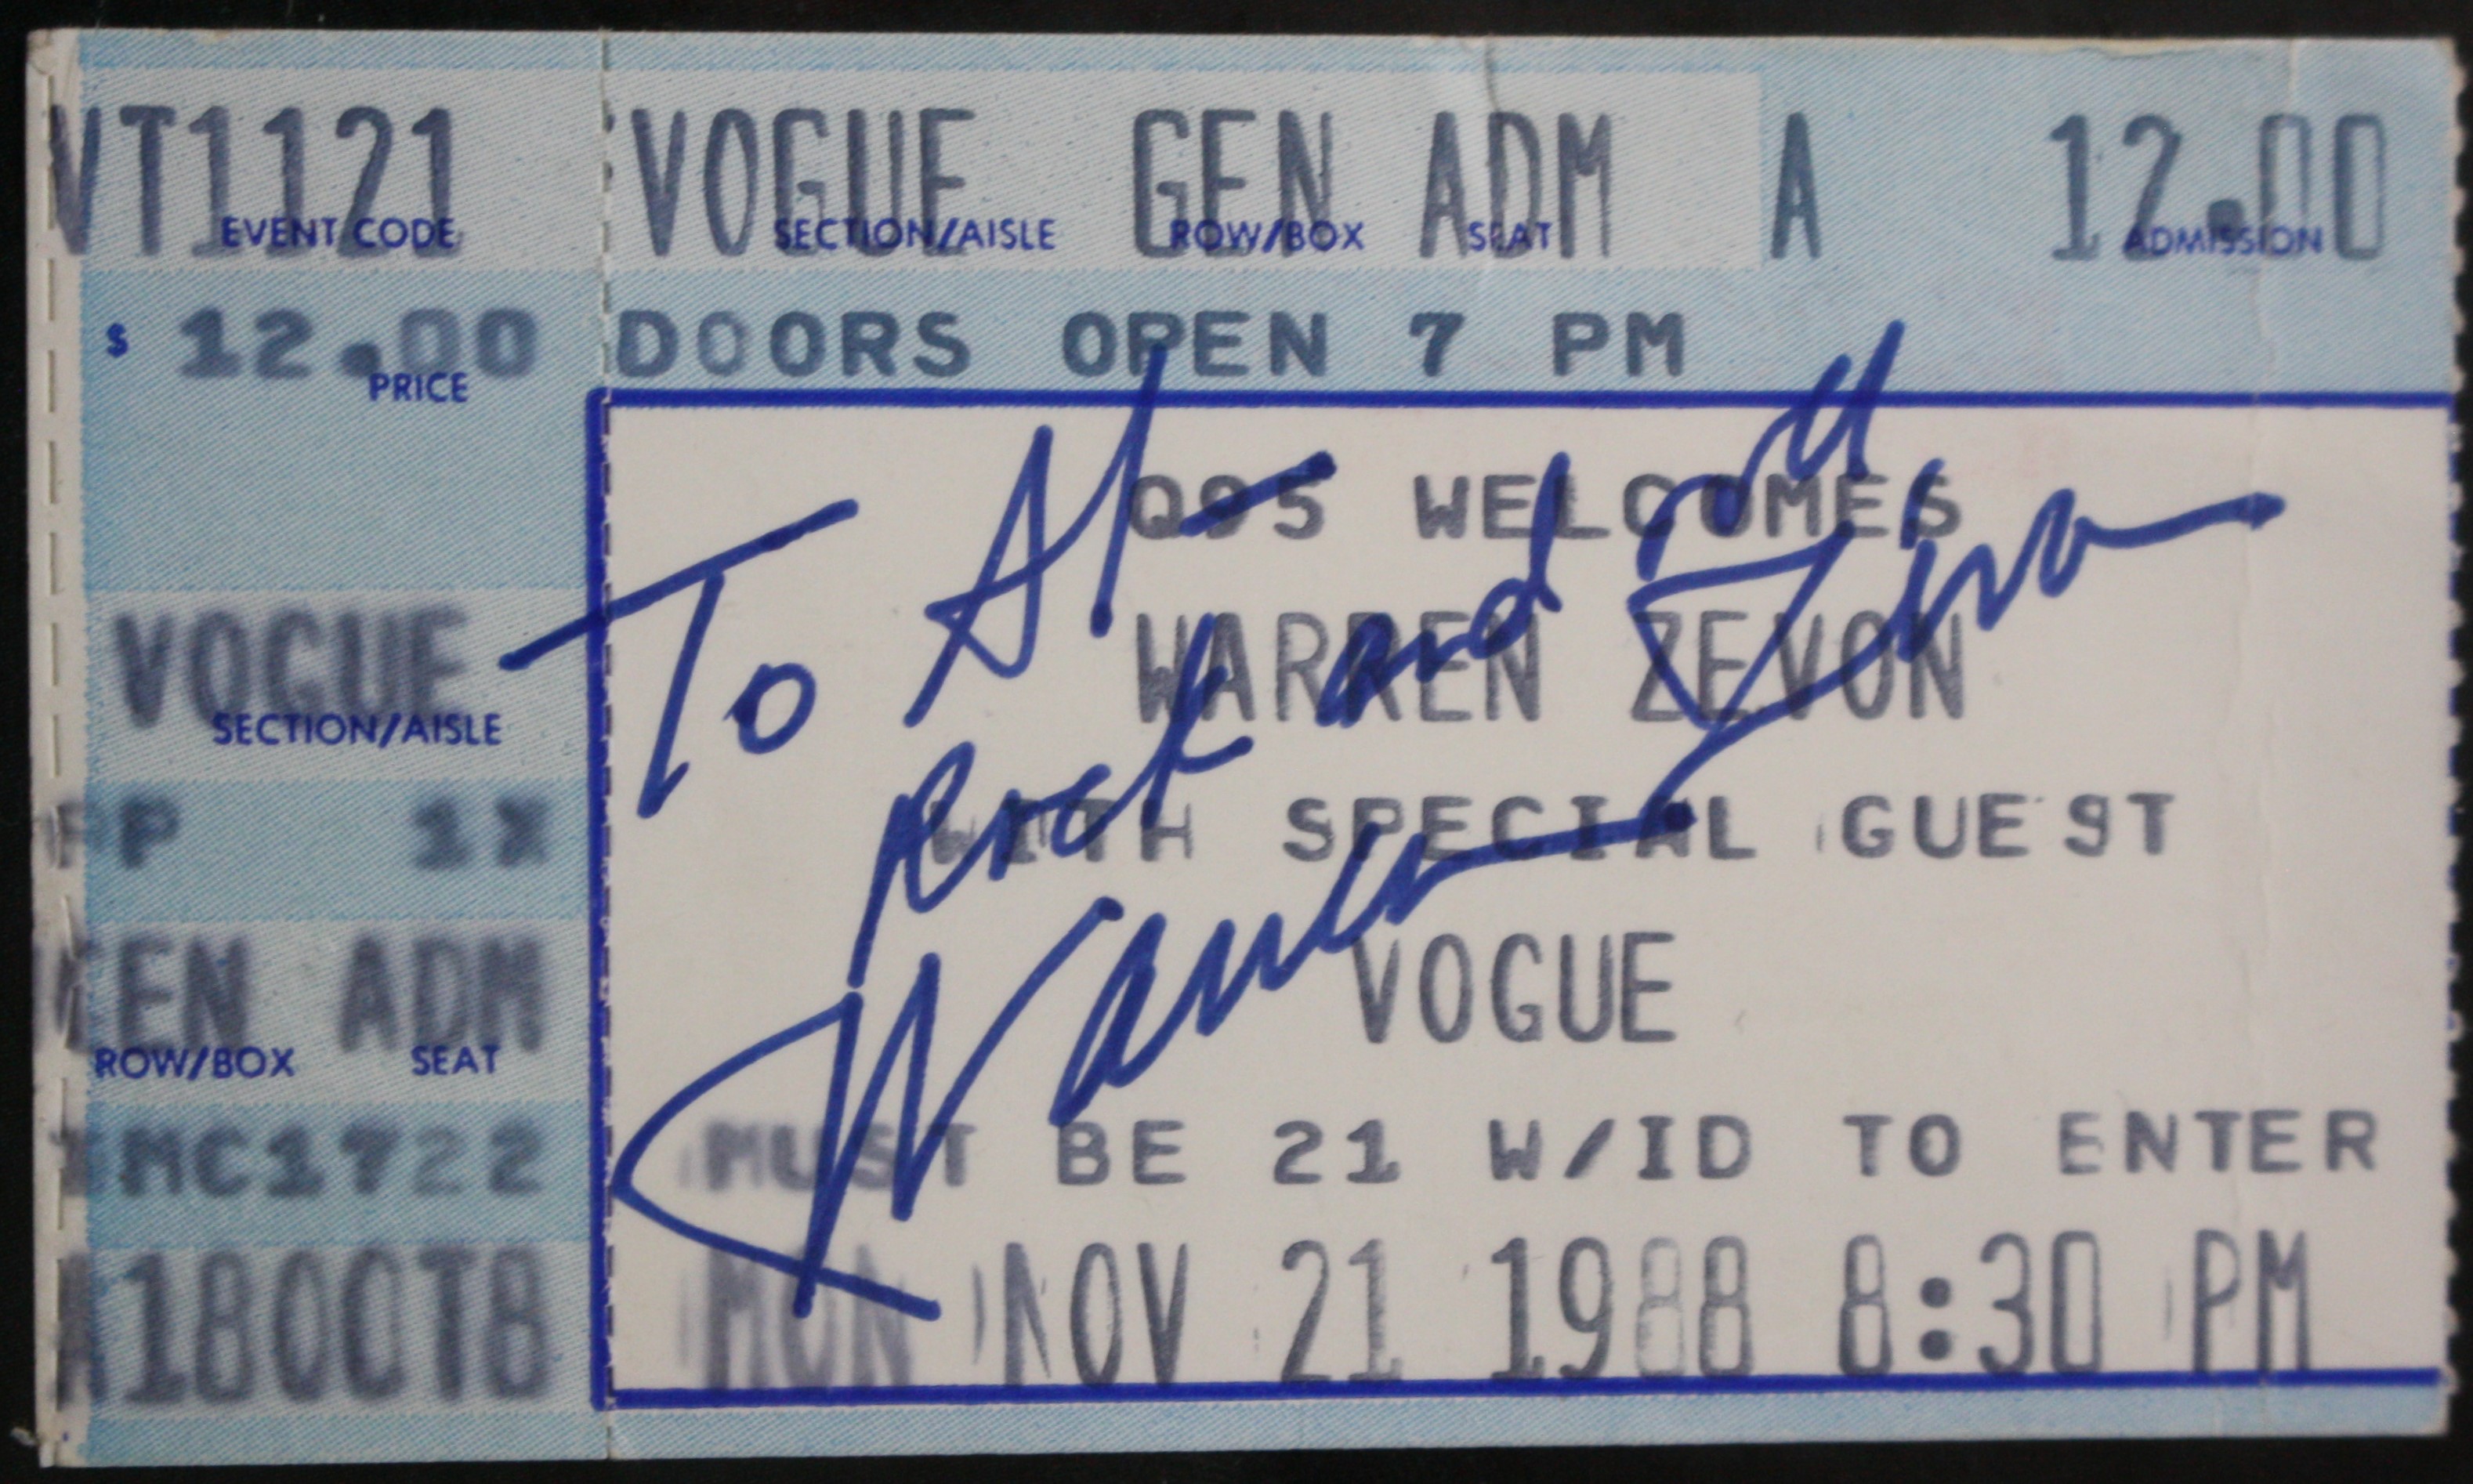 VT1121 VOGUE GEN ADM A 12.00
EVENT CODE SECTION/AISLE ROW/BOX SEAT ADMISSION
$ 12.00 DOORS OPEN 7 PM
PRICE
VOGUE
SECTION/AISLE
PP 1X
GEN ADM
ROW/BOX SEAT
MC1722
18OCT8
Q95 WELCOMES
WARREN ZEVON
WITH SPECIAL GUEST
VOGUE
MUST BE 21 W/ID TO ENTER
MON NOV 21 1988 8:30 PM
To Al-
Rock and roll
Warren Zevon